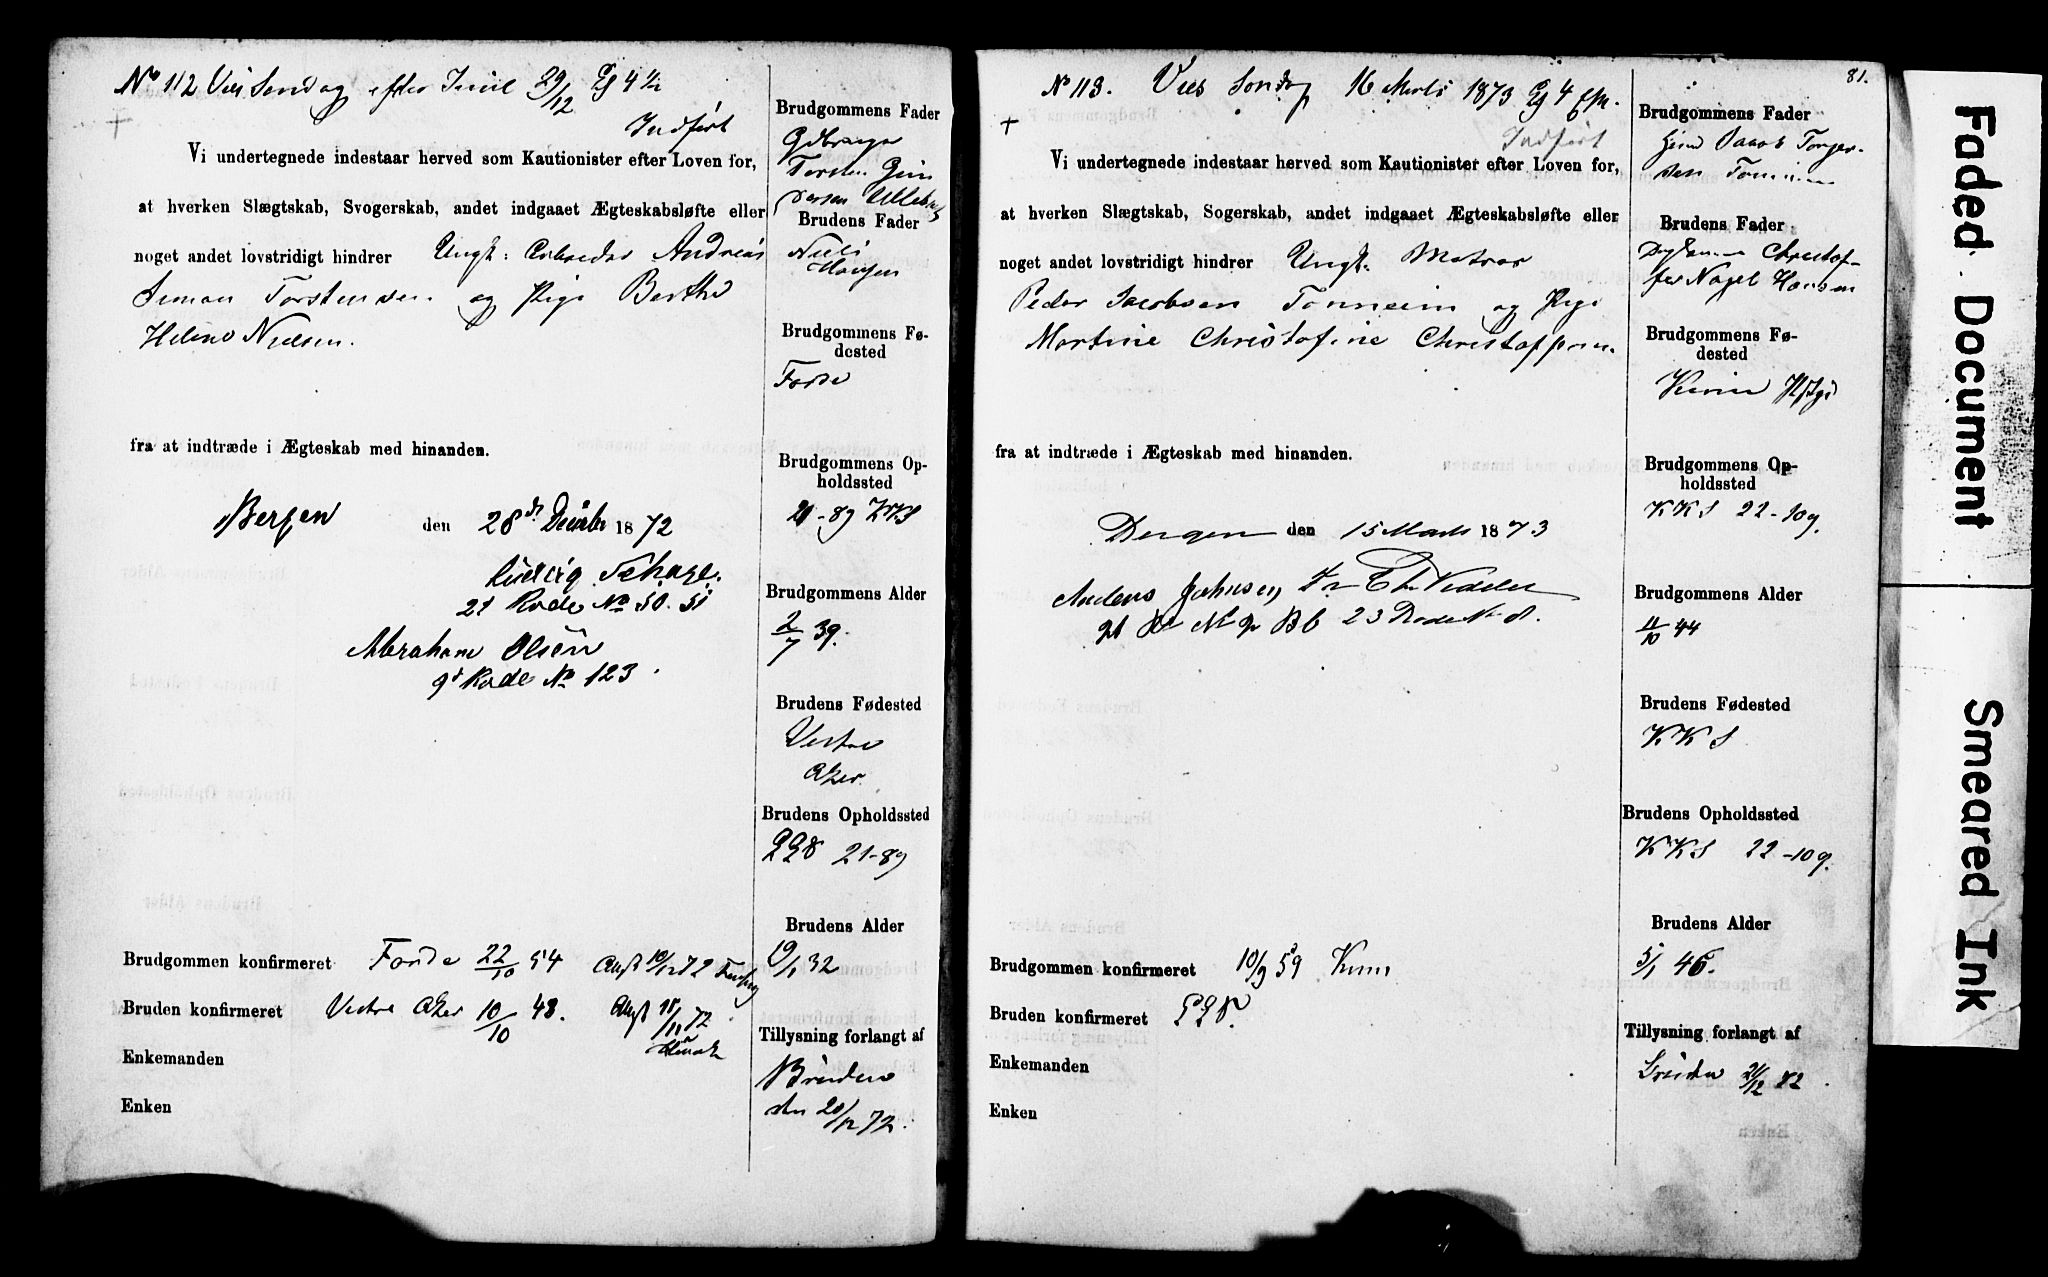 No 112 Vies Søndag efter Juul 29/12 Kl 4 1/2
Indført
Vi undertegnede indestaar herved som Kautionister efter Loven for,
at hverken Slægtskab, Svogerskab, andet indgaaet Ægteskabsløfte eller
noget andet lovstridigt hindrer Ungk: Arbeider Andreas
Simon Torstensen og Pige Berthe
Helene Nielsen.
fra at indtræde i Ægteskab med hinanden.
Bergen den 28de Decbr 1872
Ludvig
21 Rode No 50.51
Abraham Olsen
9d Rode No 123.
Brudgommen konfirmeret Førde 22/10 54
Bruden konfirmeret Vestre Aker 10/10 48.
Enkemanden
Enken
Brudgommens Fader
Torsten
Brudens Fader
Niels
Hansen
Brudgommens Fø-
dested
Førde
Brudgommens Op-
holdssted
21-89 KKS
Brudgommens Alder
2/7 39.
Brudens Fødested
Vestre
Aker
Brudens Opholdssted
21-89
Brudens Alder
19/1 32
Tillysning forlangt af
Bruden
den 20/12 72.
81.
No 113. Vies Søndag 16 Marts 1873 Kl 4 Efm.
Indført
Vi undertegnede indestaar herved som Kautionister efter Loven for,
at hverken Slægtskab, Sogerskab, andet indgaaet Ægteskabsløfte eller
noget andet lovstridigt hindrer Ungk: Matros
Peder Jacobsen Tonneim og Pige
Martine Christofine Christoffersen.
fra at indtræde i Ægteskab med hinanden.
Bergen den 15 Marts 1873
Anders Johnsen,
23 Rode No
Brudgommen konfirmeret 10/9 59 Kinn
Bruden konfirmeret
Enkemanden
Enken
Brudgommens Fader
Jacob Torger-
sen
Brudens Fader
Christof-
fer Nagel Hansen
Brudgommens Fø-
dested
Kinn
Brudgommens Op-
holdssted
KKS 22-109.
Brudgommens Alder
11/10 44
Brudens Fødested
KKS
Brudens Opholdssted
KKS 22-109.
Brudens Alder
5/1 46.
Tillysning forlangt af
Faded Document
Smeared Ink